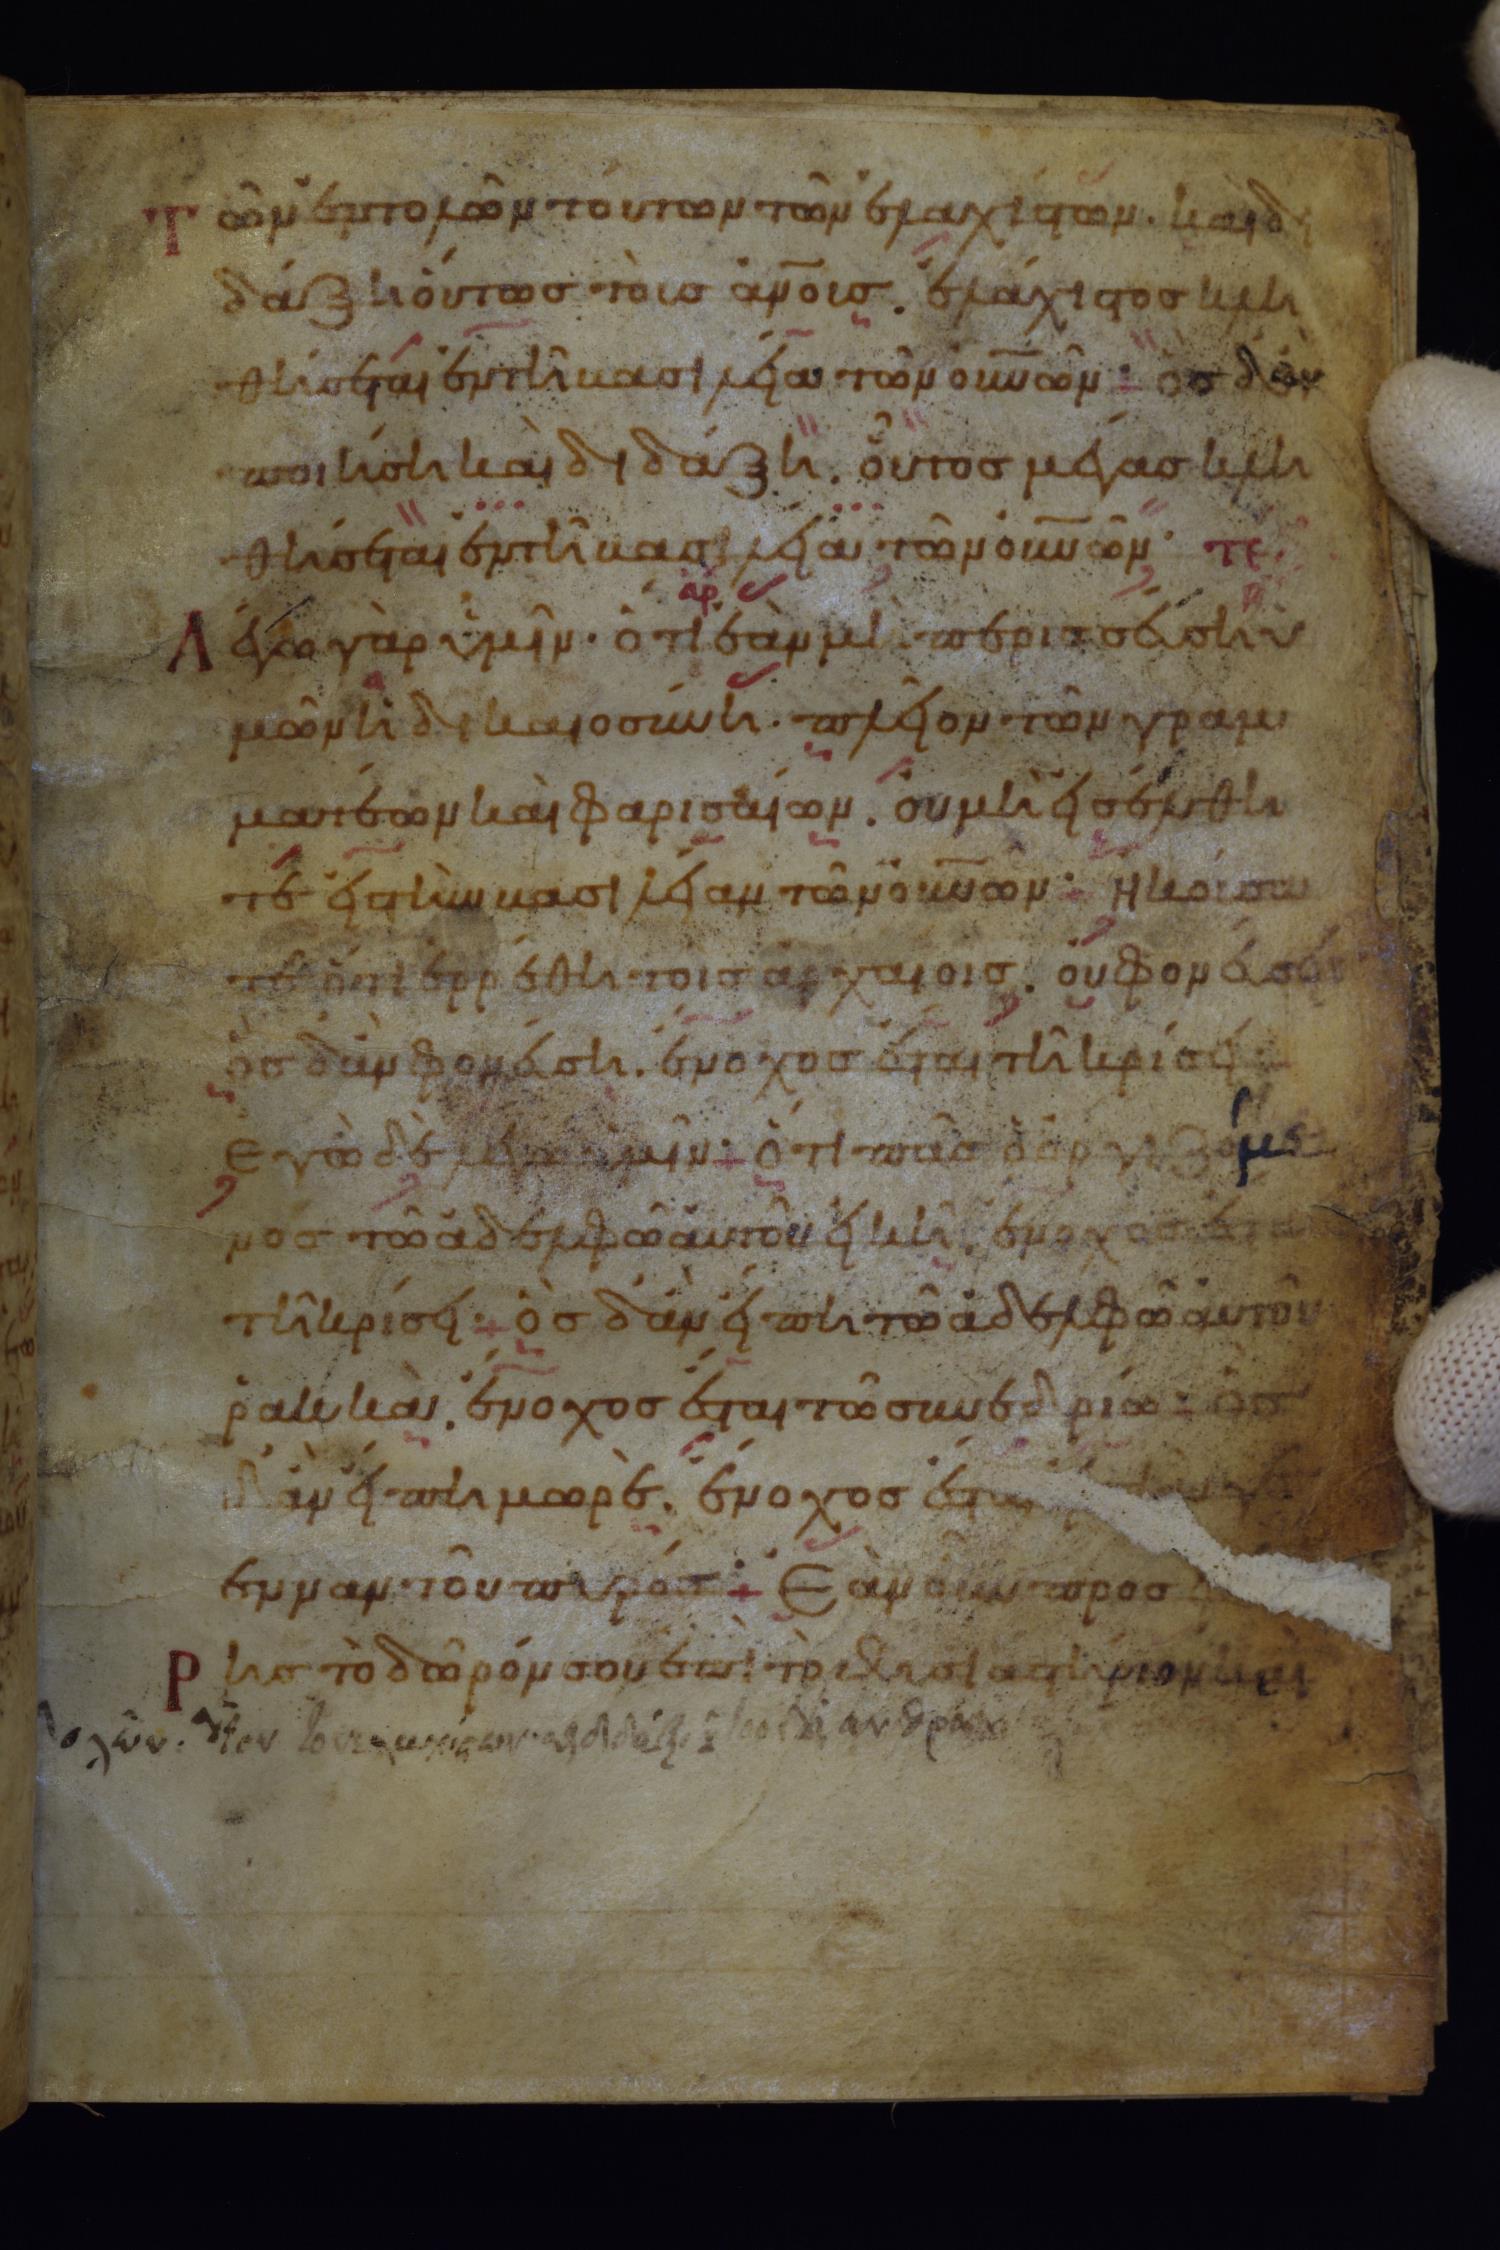 Τῶν ἐντολῶν τούτων τῶν ἐλαχίστων. καὶ δι
δάξη ὁύτωσ τοῖσ ἀν̅οισ. ἐλάχιστοσ κλη
θήσεται ἐν τῆ βασιλεία τῶν οὐν̅ῶν: ὁσ δ' ἂν
ποιήση καὶ διδάξη. οὗτοσ μέγασ κλη
θήσεται ἐν τῆ βασιλεία τῶν οὐν̅ῶν· τε.
αρ
Λέγω γὰρ ὑμῖν· ὅτι ἐὰν μὴ περισσεύση ὑ
μῶν ἡ δικαιοσύνη. πλεῖον τῶν γραμ
ματέων καὶ φαρισαίων. οὐ μὴ εἰσέλθη
τε εἰσ τὴν βασιλείαν τῶν οὐν̅ῶν: Ηκούσα
τε ὅτι ἐρρέθη τοισ ἀρχαίοισ. οὐ φονεύσεισ
ὃσ δ' ἂν φονεύση. ἔνοχοσ ἔσται τῆ κρίσει:
Εγὼ δὲ λέγω ὑμῖν: ὅτι πᾶσ ὁ ὀργιζόμε
νοσ τῶ ἀδελφῶ ἀυτοῦ εἰκῆ. ἔνοχοσ ἔσται
τῆ κρίσει: ὃσ δ' ἂν εἴπη τῶ ἀδελφῶ ἀυτοῦ
ῥακκὰ. ἔνοχοσ ἔσται τῶ συνεδρίω: ὃσ
δ' ἂν εἴπη μωρὲ. ἔνοχοσ ἔσται
ενναν τοῦ πυρόσ: Εὰν οὖν προσ
Ρησ τὸ δῶρόν σου ἐπὶ τὸ θυσιαστήριον καὶ